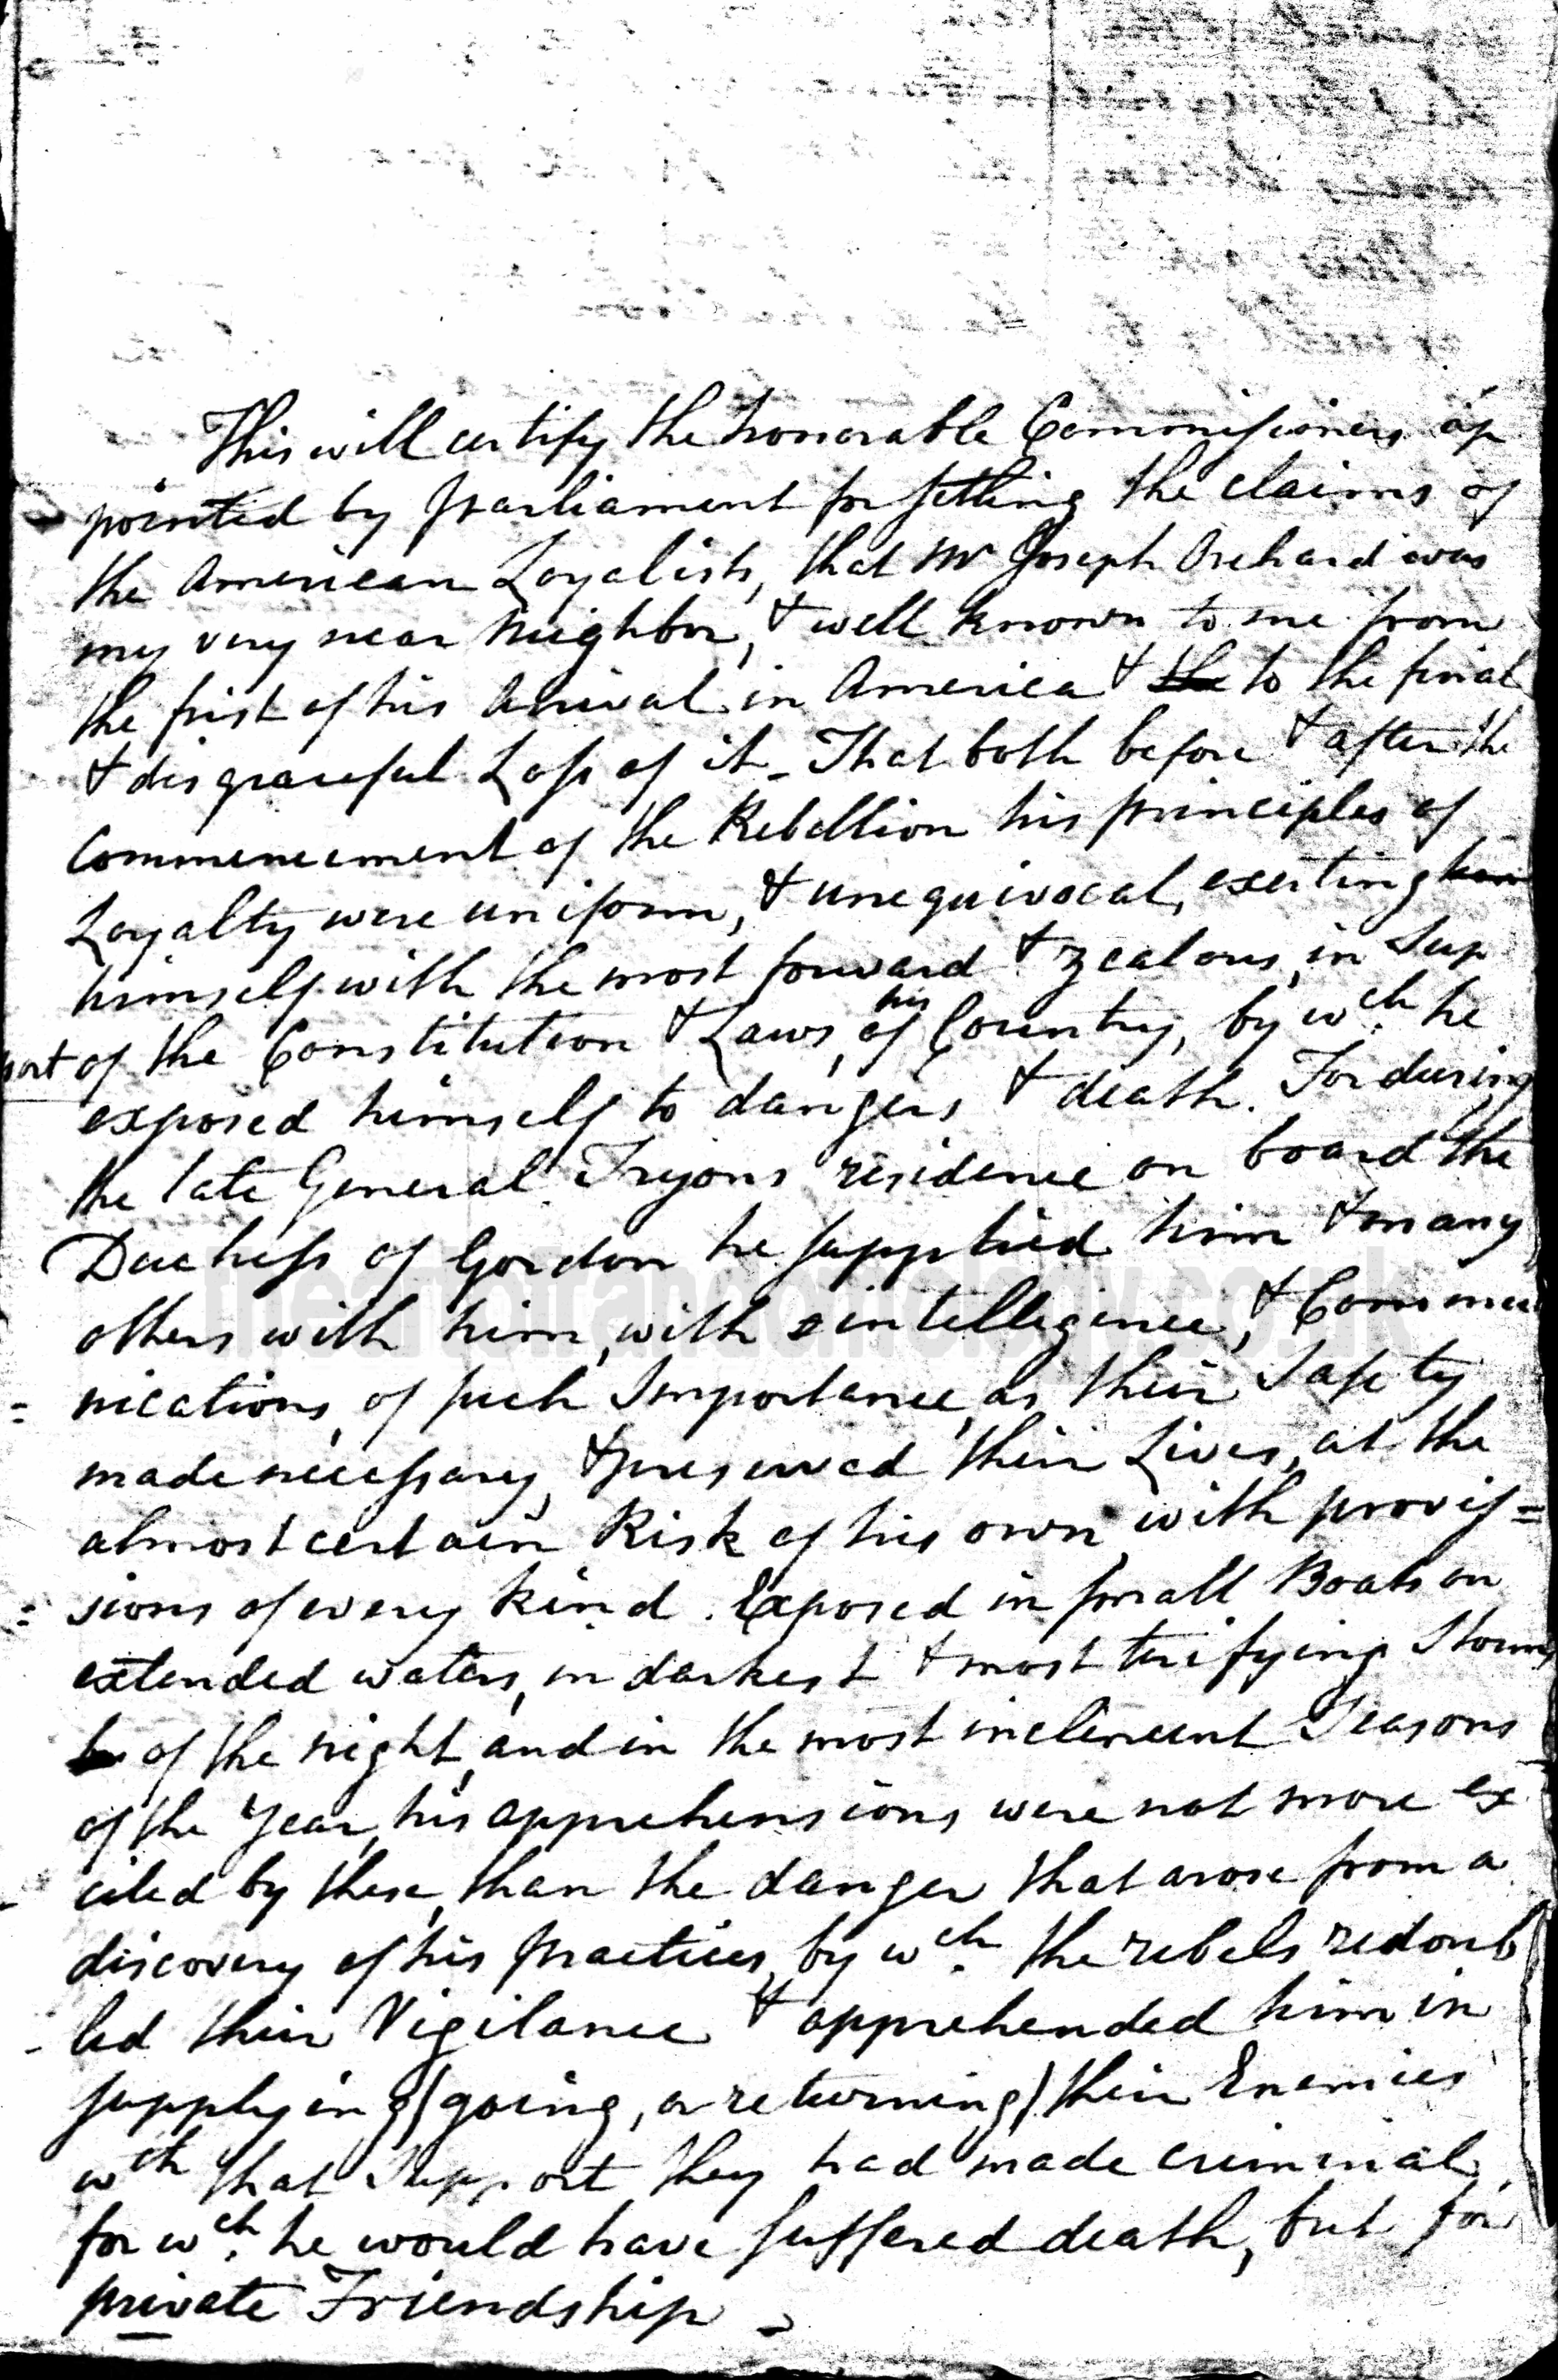 This will certify the honorable Commissioners ap
pointed by Parliament for setling the claims of
the American Loyalists, that Mr Joseph Orchard was
my very near Neighbor, & well known to me from
the first of his Arival in America & the to the final
& disgraceful Loss of it - That both before & after the
Commencement of the Rebellion his principles of
Loyalty were uniform, & unequivocal, exerting him
himself with the most forward & zealous, in Sup
port of the Constitution & Laws, of his Country, by wch. he
exposed himself to dangers & death. For during
the late General Tryons residence on board the
Duchess of Gordon he supplied him & many
others with him, with intelligence, & Commu
= nications, of such Importance, as their Safety
made necessary, & preserved their Lives, at the
almost certain Risk of his own, with provis=
= sions of every kind. Exposed in small Boats on
extended waters, in darkest & most terifying Storms
of the night, and in the most inclement Seasons
of the Year, his apprehensions were not more ex
- cited by these, than the danger that arose from a
discovery of his Practices, by wch. the rebels redoub
- led their Vigilance & apprehended him in
supplying (going, or returning) their Enemies
wth that Support they had made criminal,
for wch. he would have suffered death, but for
private Friendship -
theartofrandomology.co.uk